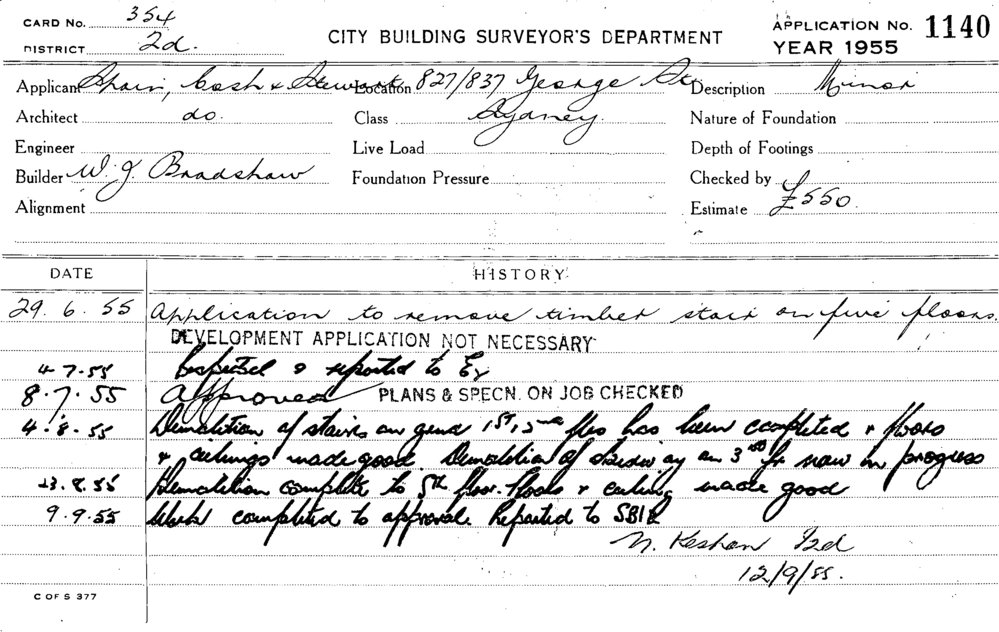 CARD No. 354
DISTRICT 2d.
CITY BUILDING SURVEYOR'S DEPARTMENT
APPLICATION No. 1140
YEAR 1955
Applicant Spain, Cosh & Stewart Location 827/837 George St Description Minor
Architect do. Class Sydney. Nature of Foundation
Engineer Live Load Depth of Footings
Builder W. J. Bradshaw Foundation Pressure Checked by
Alignment Estimate £550.
DATE HISTORY
29. 6. 55 Application to remove timber stair on five floors.
DEVELOPMENT APPLICATION NOT NECESSARY
4.7.55 Inspected & reported to Ex
8.7.55 Approved PLANS & SPECN. ON JOB CHECKED
4.8.55 Demolition of stairs on grnd 1ST, 2nd flrs has been completed & floors
& ceilings made good. Demolition of stairway on 3rd flr now in progress
23.8.55 Demolition complete to 5th floor. floors & ceiling made good
9.9.55 Work completed to approval. Reported to SBIR
N. Keshan 12d
12/9/55.
C OF S 377